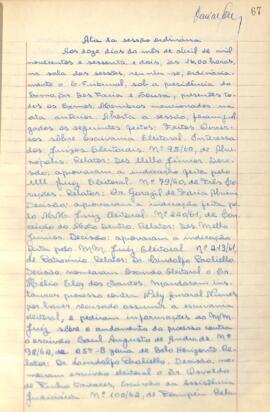 67
Ata da sessão ordinária
Aos onze dias do mês de abril de mil
novecentos e sessenta e dois, às 14,00 horas,
na sala das sessões, reuniu-se, ordinariamente
o E. Tribunal, sob a presidência do
Des. Faria e Sousa, presentes
os Exmos. Membros mencionados na
ata anterior. Aberta a sessão, foram julgados
os seguintes feitos: Feitos Diversos
sobre Escrivania Eleitoral. Interessados
Juizos Eleitorais: Nº 95/60, de
Relator: Des. Mello Júnior. Decisão:
aprovaram a indicação feita pelo
MM. Juiz Eleitoral. Nº 79/60, de Três Corações
Relator: Dr. de Faria
Decisão: aprovaram a indicação feita pelo
MM. Juiz Eleitoral. Nº 220/61, de Conceição
do Mato Dentro. Relator: Des. Mello
Júnior. Decisão: aprovaram a indicação
feita pelo MM. Juiz Eleitoral. Nº 213/61,
de Patrocínio. Relator: Dr. Lindolfo Paoliello.
Decisão: nomearam Escrivão Eleitoral o Sr.
Hélio Eloy dos Santos. Mandaram instaurar
processo contra Amaral
por haver recusado assumir a escrivania
eleitoral, e pediram informações ao MM.
Juiz sobre o andamento do processo contra
o escrivão Saul Augusto de Andrade. Nº
98/62, da Zona de Belo Horizonte. Relator:
Dr. Lindolfo Paoliello. Decisão: nomearam
escrivão eleitoral o Sr. Osvaldo
de Pinho Tavares, Escrivão da Assistência
Judiciária. Nº 100/62, de